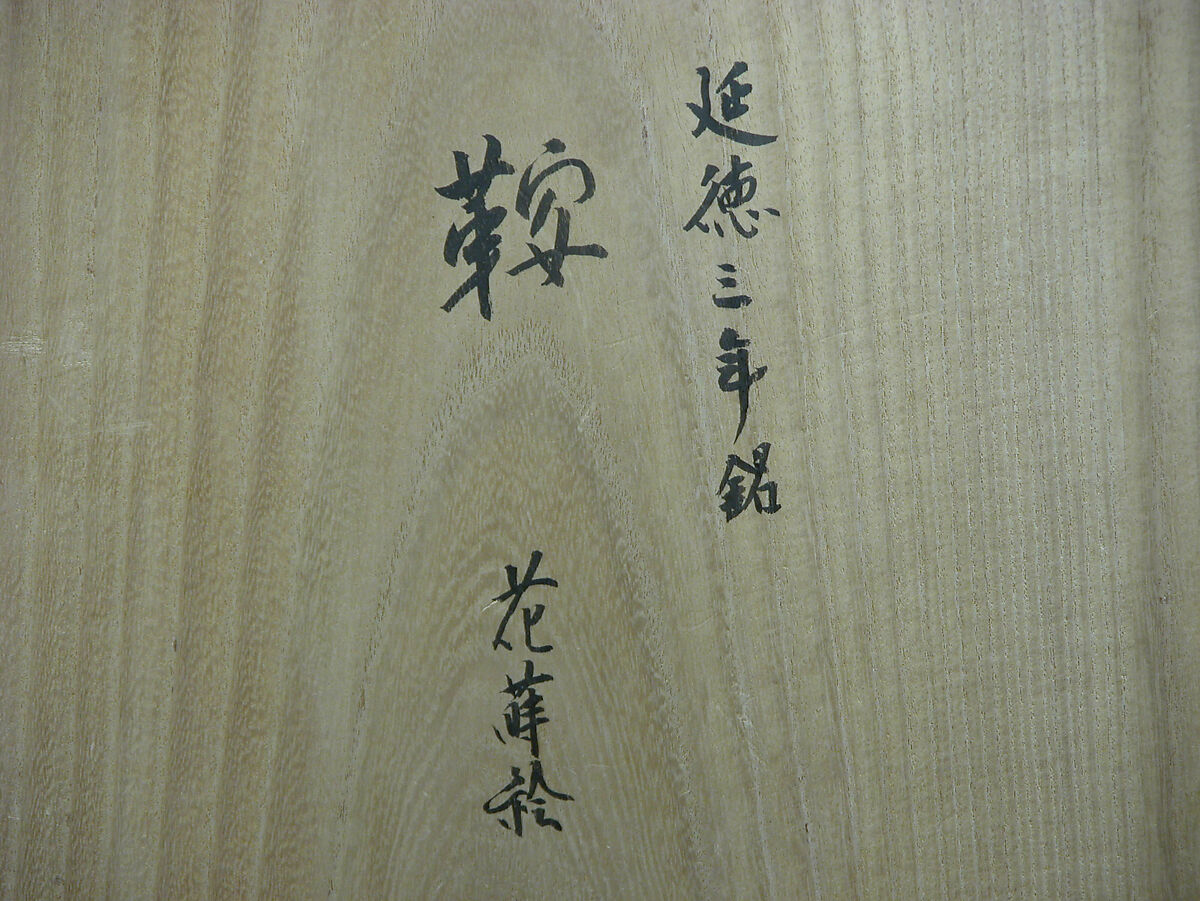 延徳三年銘
鞍
花蒔絵